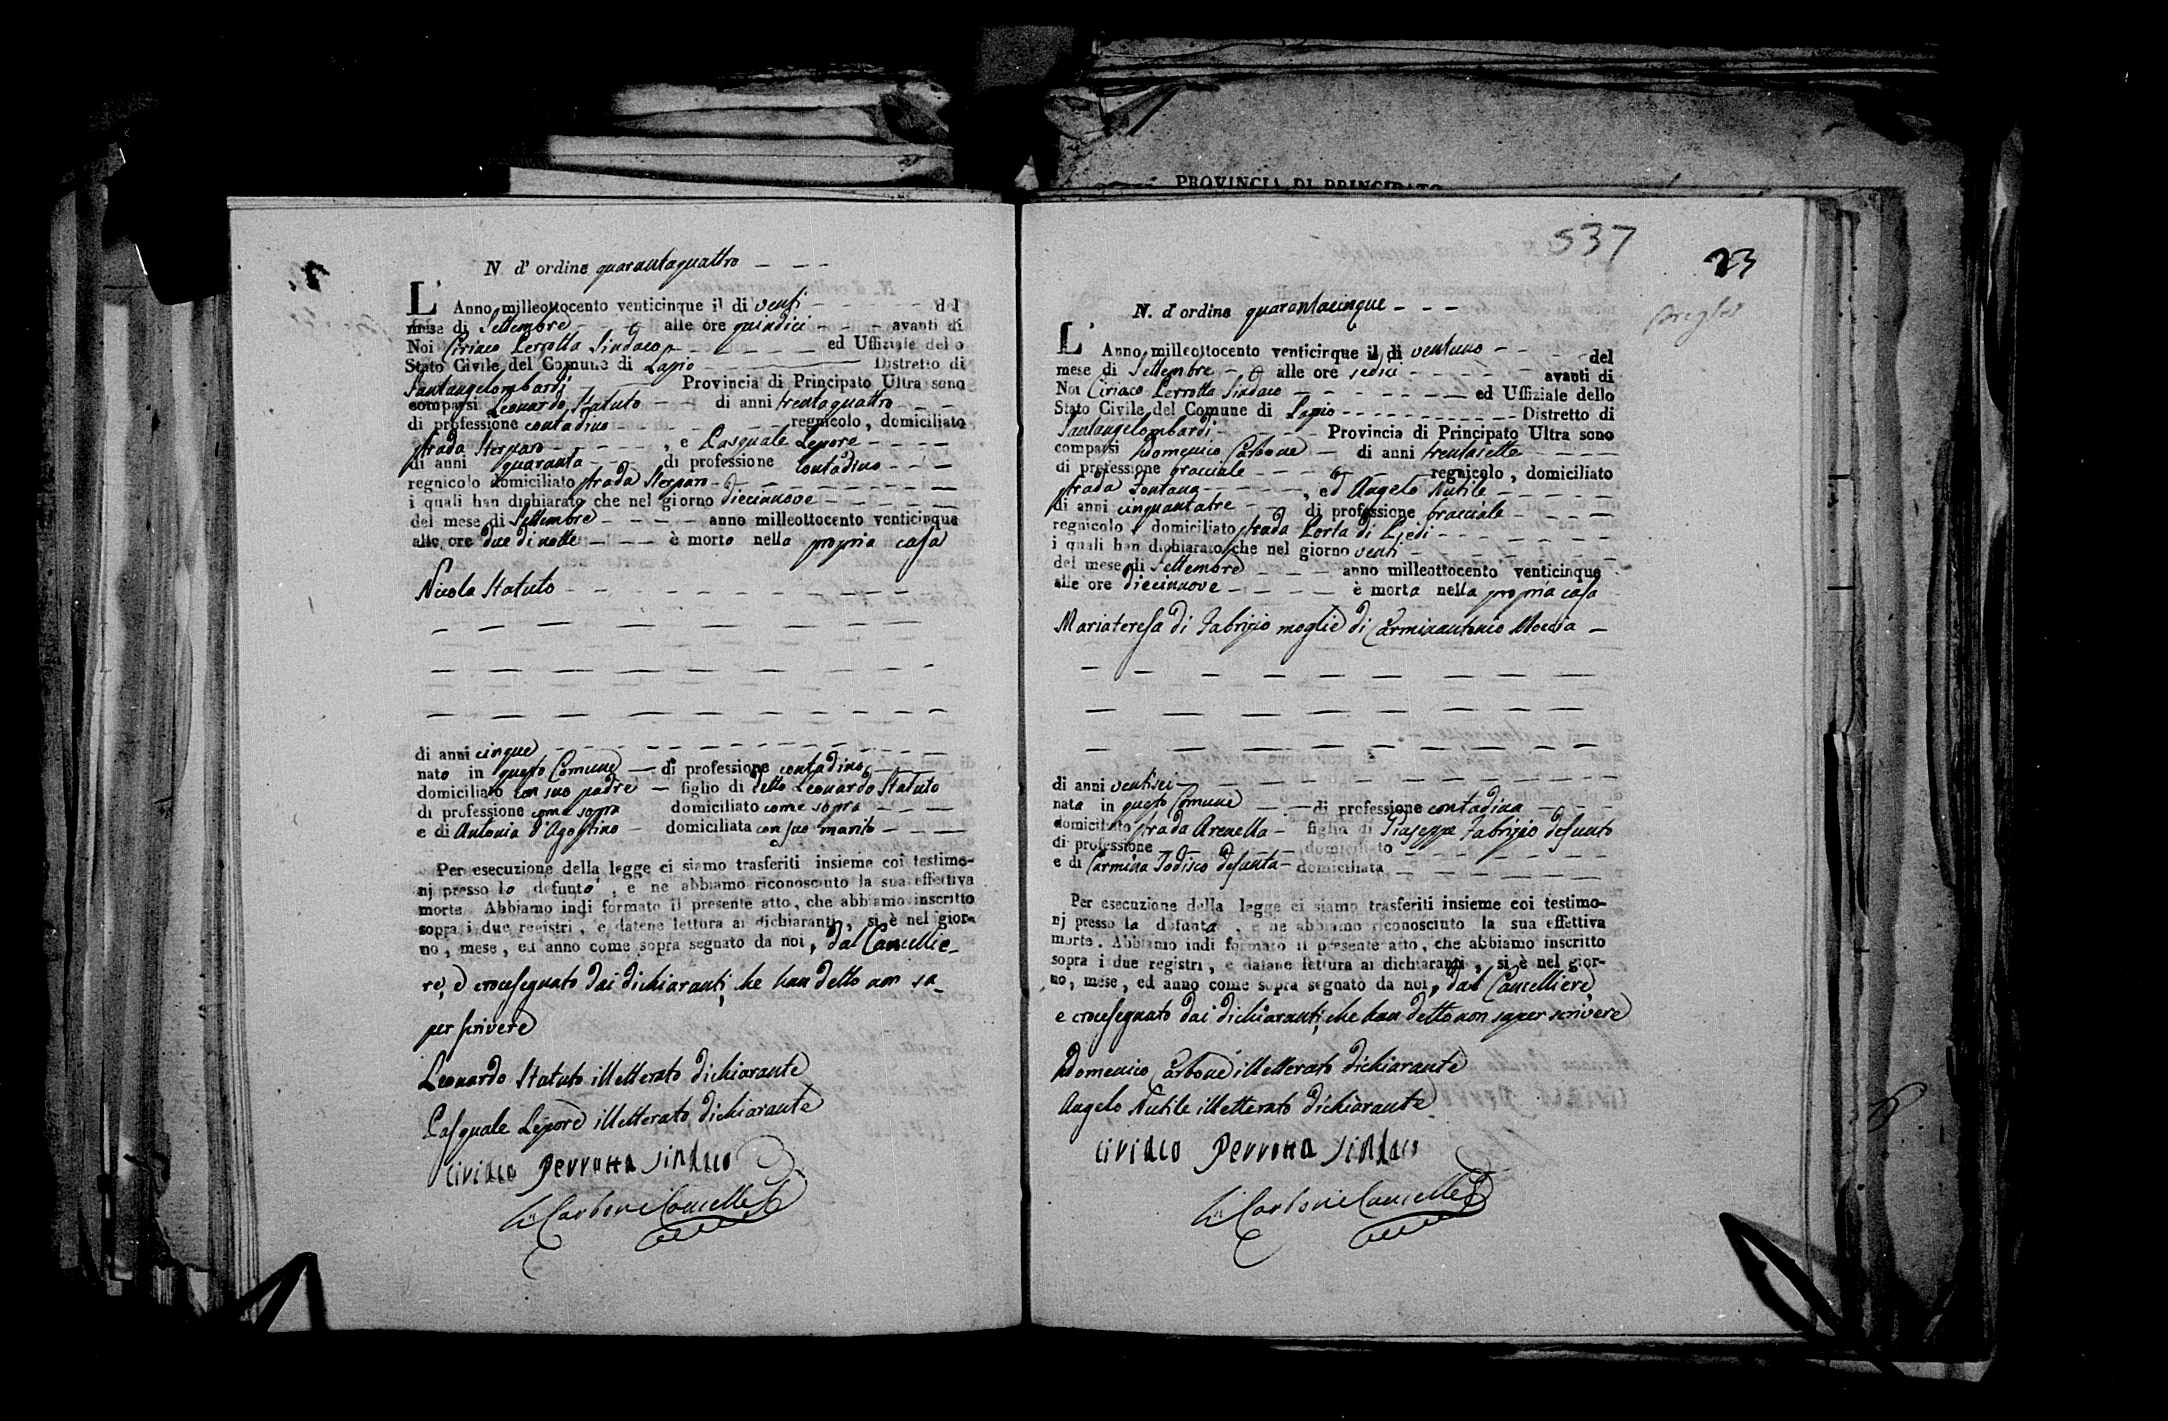 PROVINCIA DI PRINCIPATO
N. d' ordine quarantaquattro
L' Anno milleottocento venticinque il di venti del
mese di Settembre alle ore quindici avanti di
Noi Ciriaco Perrotta Sindaco ed Uffiziale dello
Stato Civile del Comune di Lapio Distretto di
Santangelombardi Provincia di Principato Ultra sono
comparsi Leonardo Statuto di anni trentaquattro
di professione contadino regnicolo, domiciliato
strada Sterparo, e Pasquale Lepore
di anni quaranta di professione contadino
regnicolo domiciliato strada Sterparo
i quali han dichiarato che nel giorno diecinnove
del mese di Settembre anno milleottocento venticinque
alle ore due di notte è morto nella propria casa
Nicola Statuto
di anni cinque
nato in questo Comune di professione contadino
domiciliato con suo padre figlio di detto Leonardo Statuto
di professione come sopra domiciliato come sopra
e di Antonia d'Agostino domiciliata con suo marito
Per esecuzione della legge ci siamo trasferiti insieme coi testimo-
nj presso lo defunto, e ne abbiamo riconosciuto la sua effettiva
morte. Abbiamo indi formato il presente atto, che abbiamo inscritto
sopra i due registri, e datene lettura ai dichiaranti, si è nel gior-
no, mese, ed anno come sopra segnato da noi, dal Cancellie-
re, e crocesegnato dai dichiaranti, che han detto non sa-
per scrivere
Leonardo Statuto illetterato dichiarante
Pasquale Lepore illetterato dichiarante
Ciriaco Perrotta Sindaco
Carbone Cancelle
537
23
N. d' ordine quarantacinque
L' Anno milleottocento venticinque il di ventuno del
mese di Settembre alle ore sedici avanti di
Noi Ciriaco Perrotta Sindaco ed Uffiziale dello
Stato Civile del Comune di Lapio Distretto di
Santangelombardi Provincia di Principato Ultra sono
comparsi Domenico Carbone di anni trentasette
di professione bracciale regnicolo, domiciliato
strada Fontana, ed Angelo Nutile
di anni cinquantatre di professione bracciale
regnicolo domiciliato strada Porta di Piedi
i quali han dichiarato che nel giorno venti
del mese di Settembre anno milleottocento venticinque
alle ore diecinnove è morta nella propria casa
Mariateresa di Fabrizio moglie di Carminantonio Moccia
di anni ventisei
nata in questo Comune di professione contadina
domiciliato strada Arenella figlia di Giuseppe Fabrizio defunto
di professione domiciliato
e di Carmina Jodisco defunta domiciliata
Per esecuzione della legge ci siamo trasferiti insieme coi testimo-
nj presso la defunta, e ne abbiamo riconosciuto la sua effettiva
morte. Abbiamo indi formato il presente atto, che abbiamo inscritto
sopra i due registri, e datane lettura ai dichiaranti, si è nel gior-
no, mese, ed anno come sopra segnato da noi, dal Cancelliere,
e crocesegnato dai dichiaranti, che han detto non saper scrivere
Domenico Carbone illetterato dichiarante
Angelo Nutile illetterato dichiarante
Ciriaco Perrotta Sindaco
Carbone Cancelle